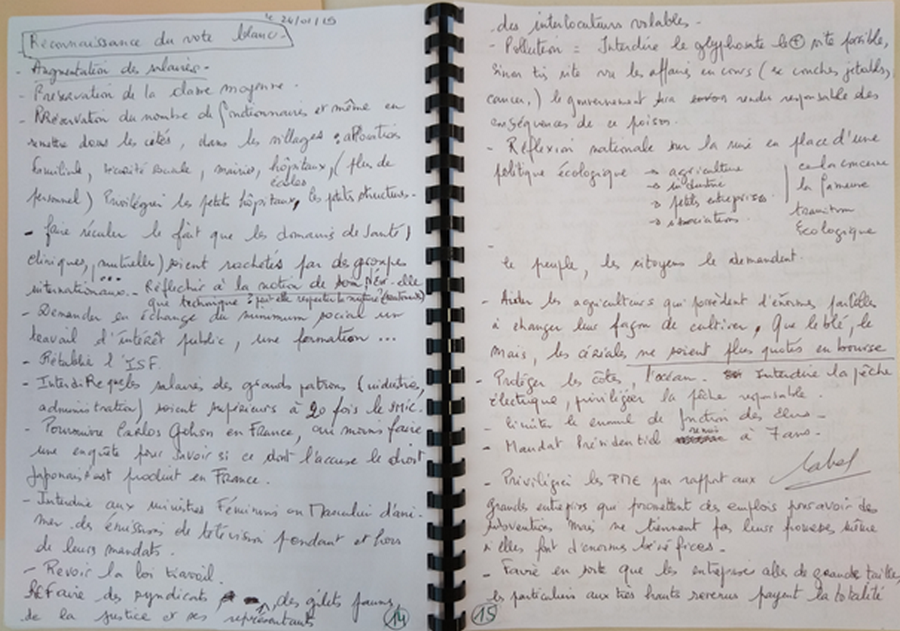 le 24/01/19
Reconnaissance du vote blanc.
- Augmentation des salaires -
- Préservation de la classe moyenne.
- Préservation du nombre de fonctionnaires et même en
remettre dans les cités, dans les villages : allocations
familiales, sécurité sociale, mairies, hôpitaux, (plus de
écoles
personnel) Privilégier les petits hôpitaux, les petites structures.
- faire reculer le fait que les domaines de santé (
cliniques, mutuelles) soient rachetés par des groupes
internationaux. - Réfléchir à la notion de
que technique :
- Demander en échange du minimum social un
travail d'intérêt public, une formation ...
- Rétablir l'ISF.
- Interdire que les salaires des grands patrons (industrie,
administration) soient supérieurs à 20 fois le SMIC.
- Poursuivre Carlos Gohsn en France, au moins faire
une enquête pour savoir si ce dont l'accuse le droit
Japonais est produit en France.
- Interdire aux ministres Féminins ou Masculin d'ani-
mer des émissions de télévision pendant et hors
de leurs mandats.
- Revoir la loi travail.
Refaire des syndicats, des gilets jaunes,
de la justice et ses représentants
14
des interlocuteurs valables.
- Pollution = Interdire le glyphosate le + vite possible,
sinon très vite vu les affaires en cours (se couches jetables,
cancer,) le gouvernement sera rendu responsable des
conséquences de ce poison.
- Réflexion nationale sur la mise en place d'une
politique écologique → agriculture
→ industrie
→ petites entreprises
→ associations.
cela concerne
la fameuse
transition
écologique
-
le peuple, les citoyens le demandent.
- Aider les agriculteurs qui possèdent d'énormes parcelles
à changer leur façon de cultiver, Que le blé, le
maïs, les céréales ne soient plus quotés en bourse
- Protéger les côtes, l'océan. Interdire la pêche
électrique, privilégier la pêche responsable.
- Limiter le cumul de fonction des élus.
- Mandat Présidentiel remis à 7 ans.
- Privilégier les PME par rapport aux
grandes entreprises qui promettent des emplois pour avoir des
subventions mais ne tiennent pas leurs promesses même
si elles font d'énormes bénéfices.
- Faire en sorte que les entreprises de grande taille,
les particuliers aux très hauts revenus payent la totalité
15